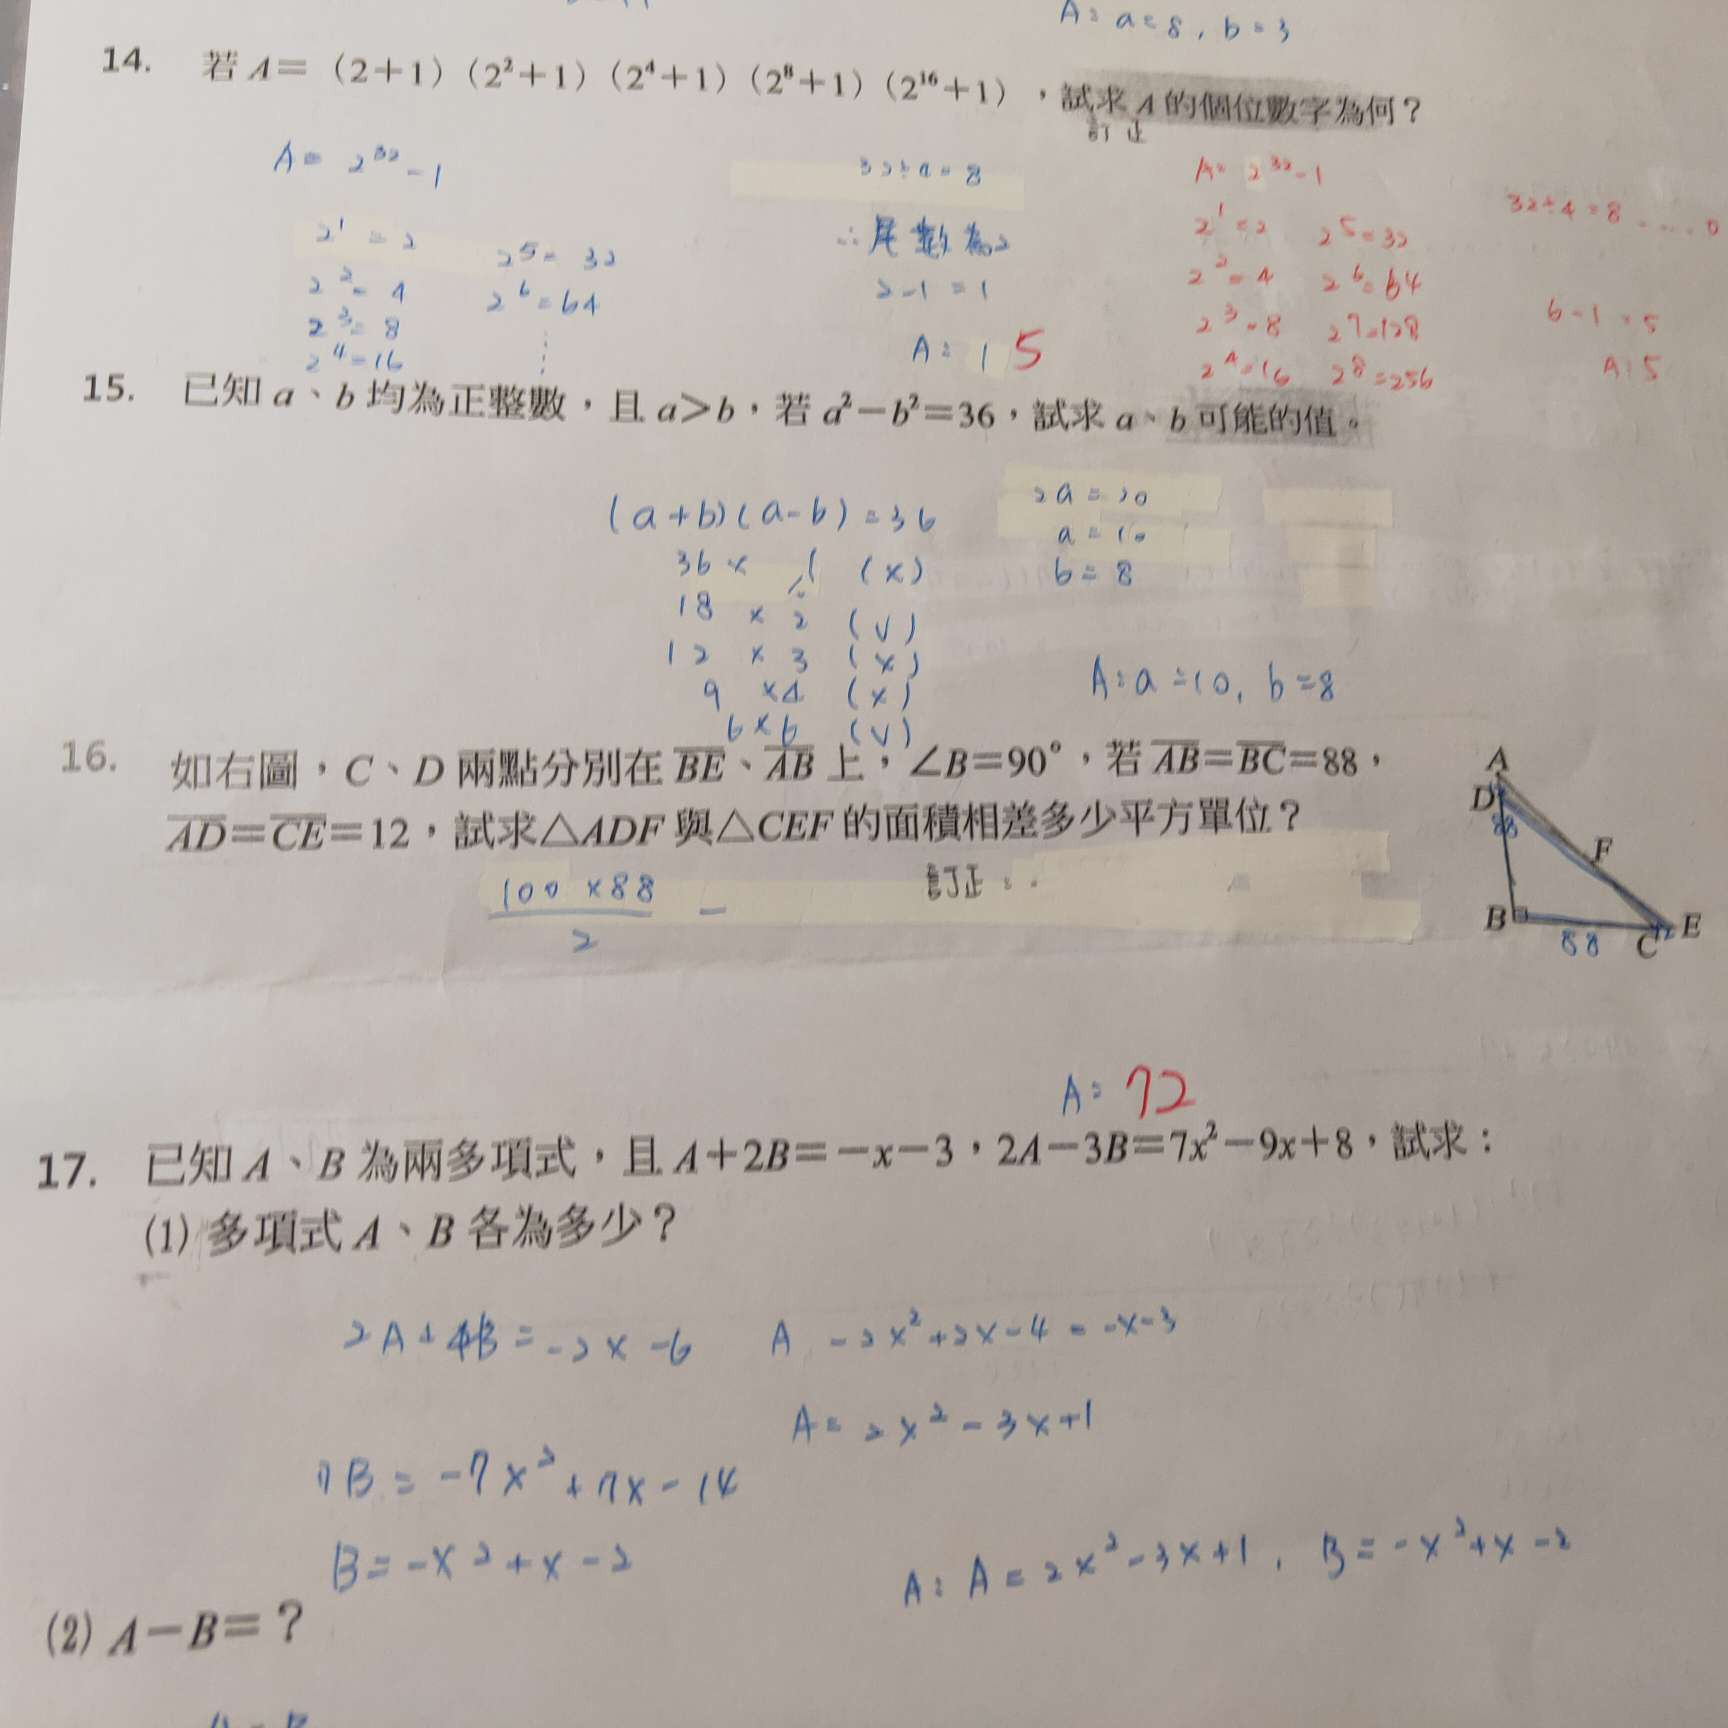 A: a=8, b=3
14. 若 A=（2+1）（2²+1）（2⁴+1）（2⁸+1）（2¹⁶+1），試求 A 的個位數字為何？
訂正
A= 2³²-1
2¹=2
2²=4
2³=8
2⁴=16
2⁵=32
2⁶=64
⋮
32÷4=8
∴尾數為2
2-1=1
A: 1 5
A=2³²-1
2¹=2 2⁵=32
2²=4 2⁶=64
2³=8 2⁷=128
2⁴=16 2⁸=256
32÷4=8.....0
6-1=5
A:5
15. 已知 a、b 均為正整數，且 a>b，若 a²-b²=36，試求 a、b 可能的值。
(a+b)(a-b)=36
36 × 1 (×)
18 × 2 (√)
12 × 3 (×)
9 ×4 (×)
6×6 (√)
2a=20
a=10
b=8
A: a=10, b=8
16. 如右圖，C、D 兩點分別在 B̅E̅、A̅B̅ 上，∠B=90°，若 A̅B̅=B̅C̅=88，
A̅D̅=C̅E̅=12，試求△ADF 與△CEF 的面積相差多少平方單位？
A
D
88
F
B
88
C
12
E
100×88 —
2
訂正：
A: 72
17. 已知 A、B 為兩多項式，且 A+2B=-x-3，2A-3B=7x²-9x+8，試求：
(1) 多項式 A、B 各為多少？
2A+4B=-2x-6
7B=-7x²+7x-14
B=-x²+x-2
A -2x²+2x-4=-x-3
A=2x²-3x+1
A: A=2x²-3x+1, B=-x²+x-2
(2) A-B=？